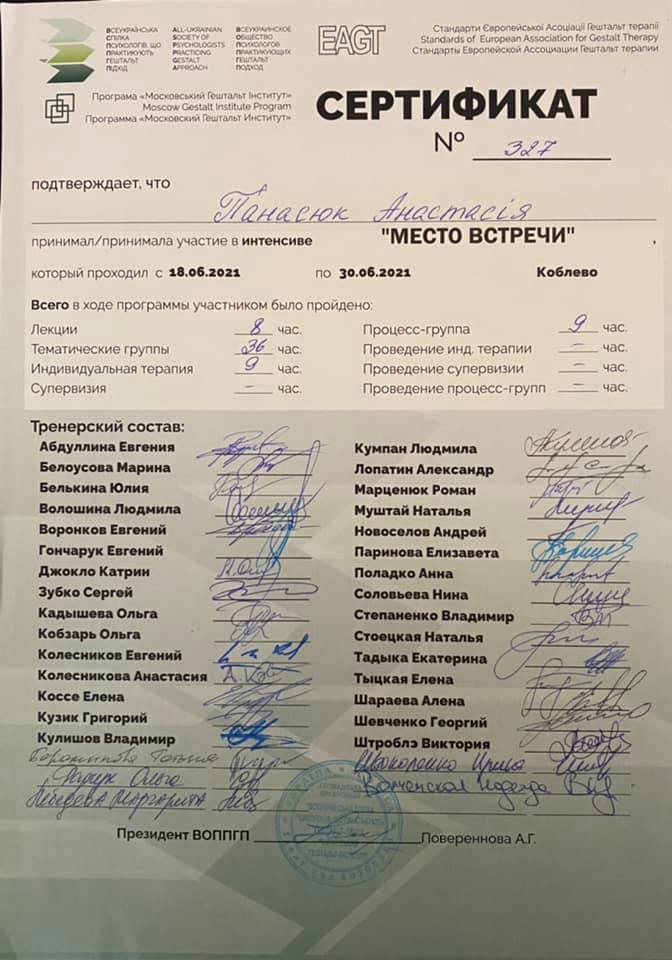 ВСЕУКРАЇНСЬКА
СПІЛКА
ПСИХОЛОГІВ, ЩО
ПРАКТИКУЮТЬ
ГЕШТАЛЬТ
ПІДХІД
ALL-UKRAINIAN
SOCIETY OF
PSYCHOLOGISTS
PRACTICING
GESTALT
APPROACH
ВСЕУКРАИНСКОЕ
ОБЩЕСТВО
ПСИХОЛОГОВ
ПРАКТИКУЮЩИХ
ГЕШТАЛЬТ
ПОДХОД
EAGT
Стандарти Європейської Асоціації Гештальт терапії
Standards of European Association for Gestalt Therapy
Стандарты Европейской Ассоциации Гештальт терапии
Програма «Московський Гештальт Інститут»
Moscow Gestalt Institute Program
Программа «Московский Гештальт Институт»
СЕРТИФИКАТ
№ 327
подтверждает, что
Панасюк Анастасія
принимал/принимала участие в интенсиве "МЕСТО ВСТРЕЧИ"
который проходил с 18.06.2021 по 30.06.2021 Коблево
Всего в ходе программы участником было пройдено:
Лекции 8 час. Процесс-группа 9 час.
Тематические группы 36 час. Проведение инд. терапии – час.
Индивидуальная терапия 9 час. Проведение супервизии – час.
Супервизия – час. Проведение процесс-групп – час.
Тренерский состав:
Абдуллина Евгения
Белоусова Марина
Белькина Юлия
Волошина Людмила
Воронков Евгений
Гончарук Евгений
Джокло Катрин
Зубко Сергей
Кадышева Ольга
Кобзарь Ольга
Колесников Евгений
Колесникова Анастасия
Коссе Елена
Кузик Григорий
Кулишов Владимир
Радчук Ольга
Лебедева Маргарита
Кумпан Людмила
Лопатин Александр
Марценюк Роман
Муштай Наталья
Новоселов Андрей
Паринова Елизавета
Поладко Анна
Соловьева Нина
Степаненко Владимир
Стоецкая Наталья
Тадыка Екатерина
Тыцкая Елена
Шараева Алена
Шевченко Георгий
Штроблэ Виктория
Ирина
Президент ВОППГП Повереннова А.Г.